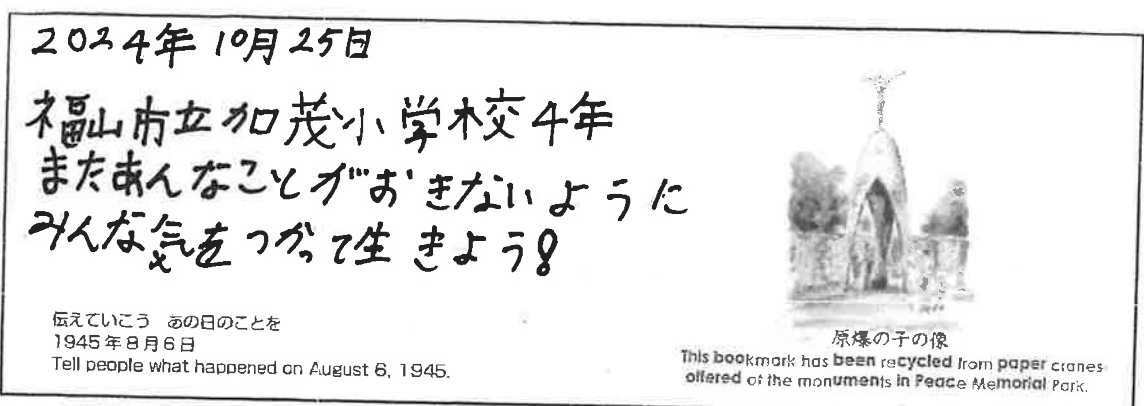 2024年10月25日
福山市立加茂小学校4年
またあんなことがおきないように
みんな気をつかって生きよう!
伝えていこう あの日のことを
1945年8月6日
Tell people what happened on August 6, 1945.
原爆の子の像
This bookmark has been recycled from paper cranes
offered at the monuments in Peace Memorial Park.